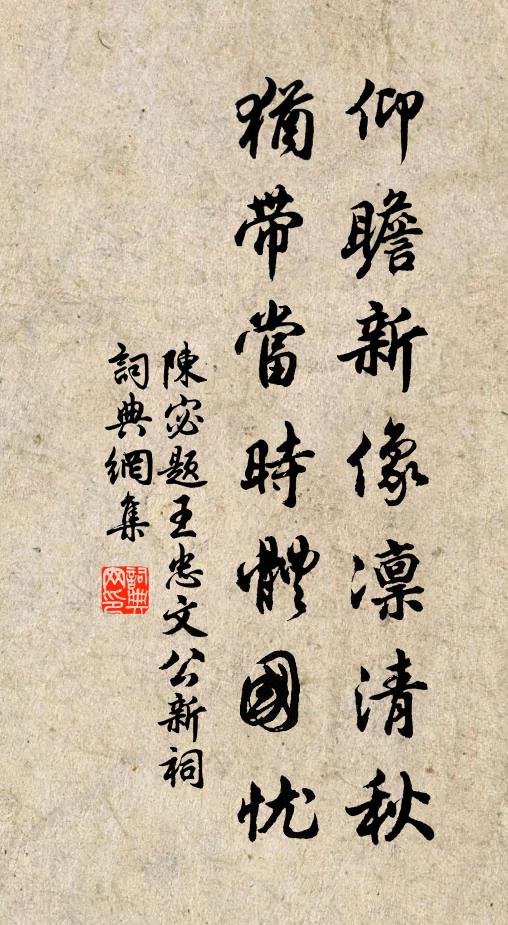 仰瞻新像凛清秋
猶带當時體國忧
陳宓题王忠文公新祠
詞典網集
詞典网印